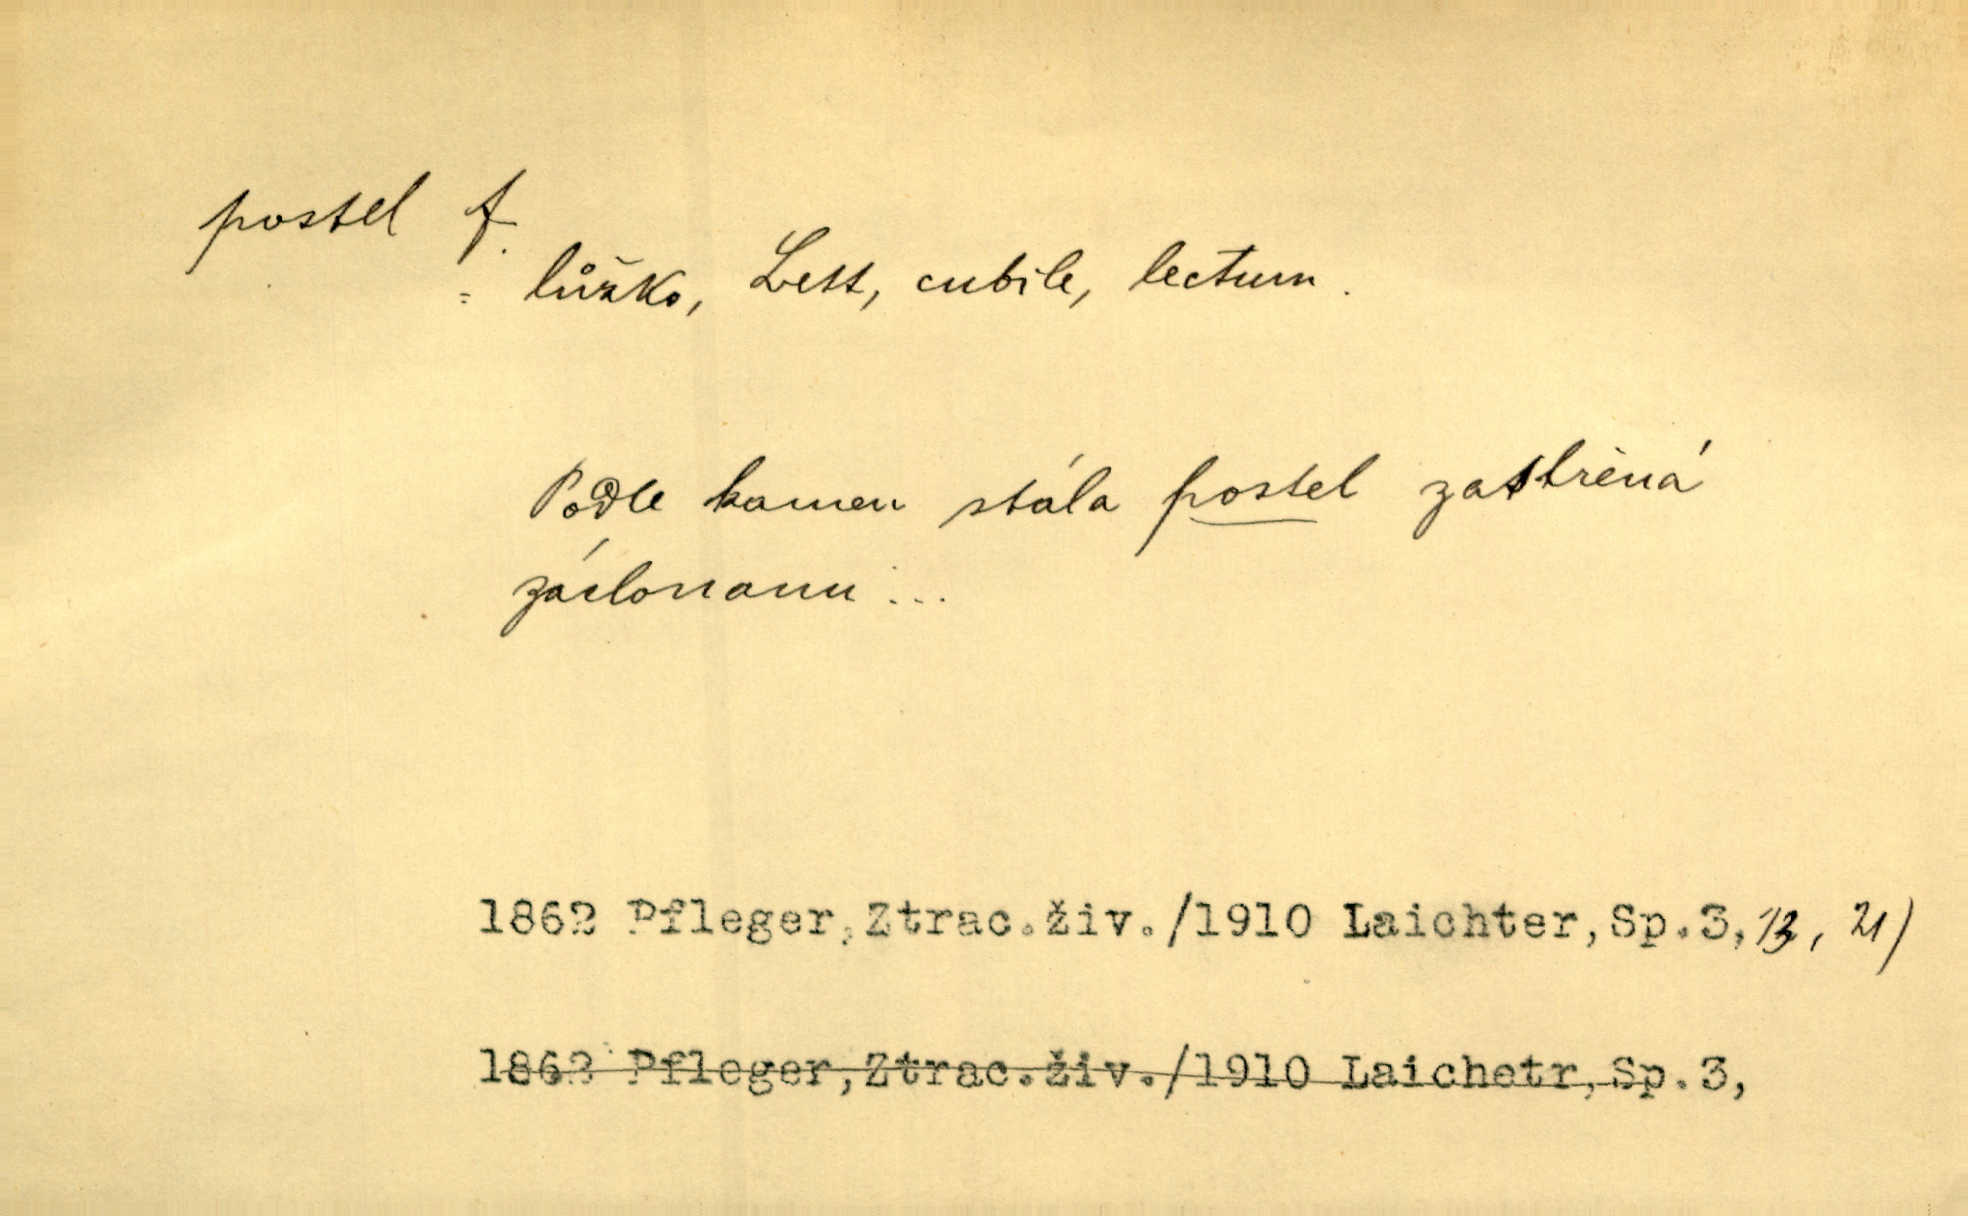 postel f.
= lůžko, Bett, cubile, lectum.
Podle kamen stála postel zastřená
záclonamu...
1862 Pfleger, Ztrac.živ./1910 Laichter, Sp.3, 13, 21)
1862 Pfleger, Ztrac.živ./1910 Laichetr, Sp.3,